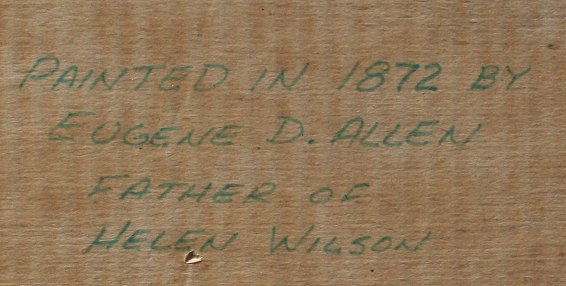 PAINTED IN 1872 BY
EUGENE D. ALLEN
FATHER OF
HELEN WILSON